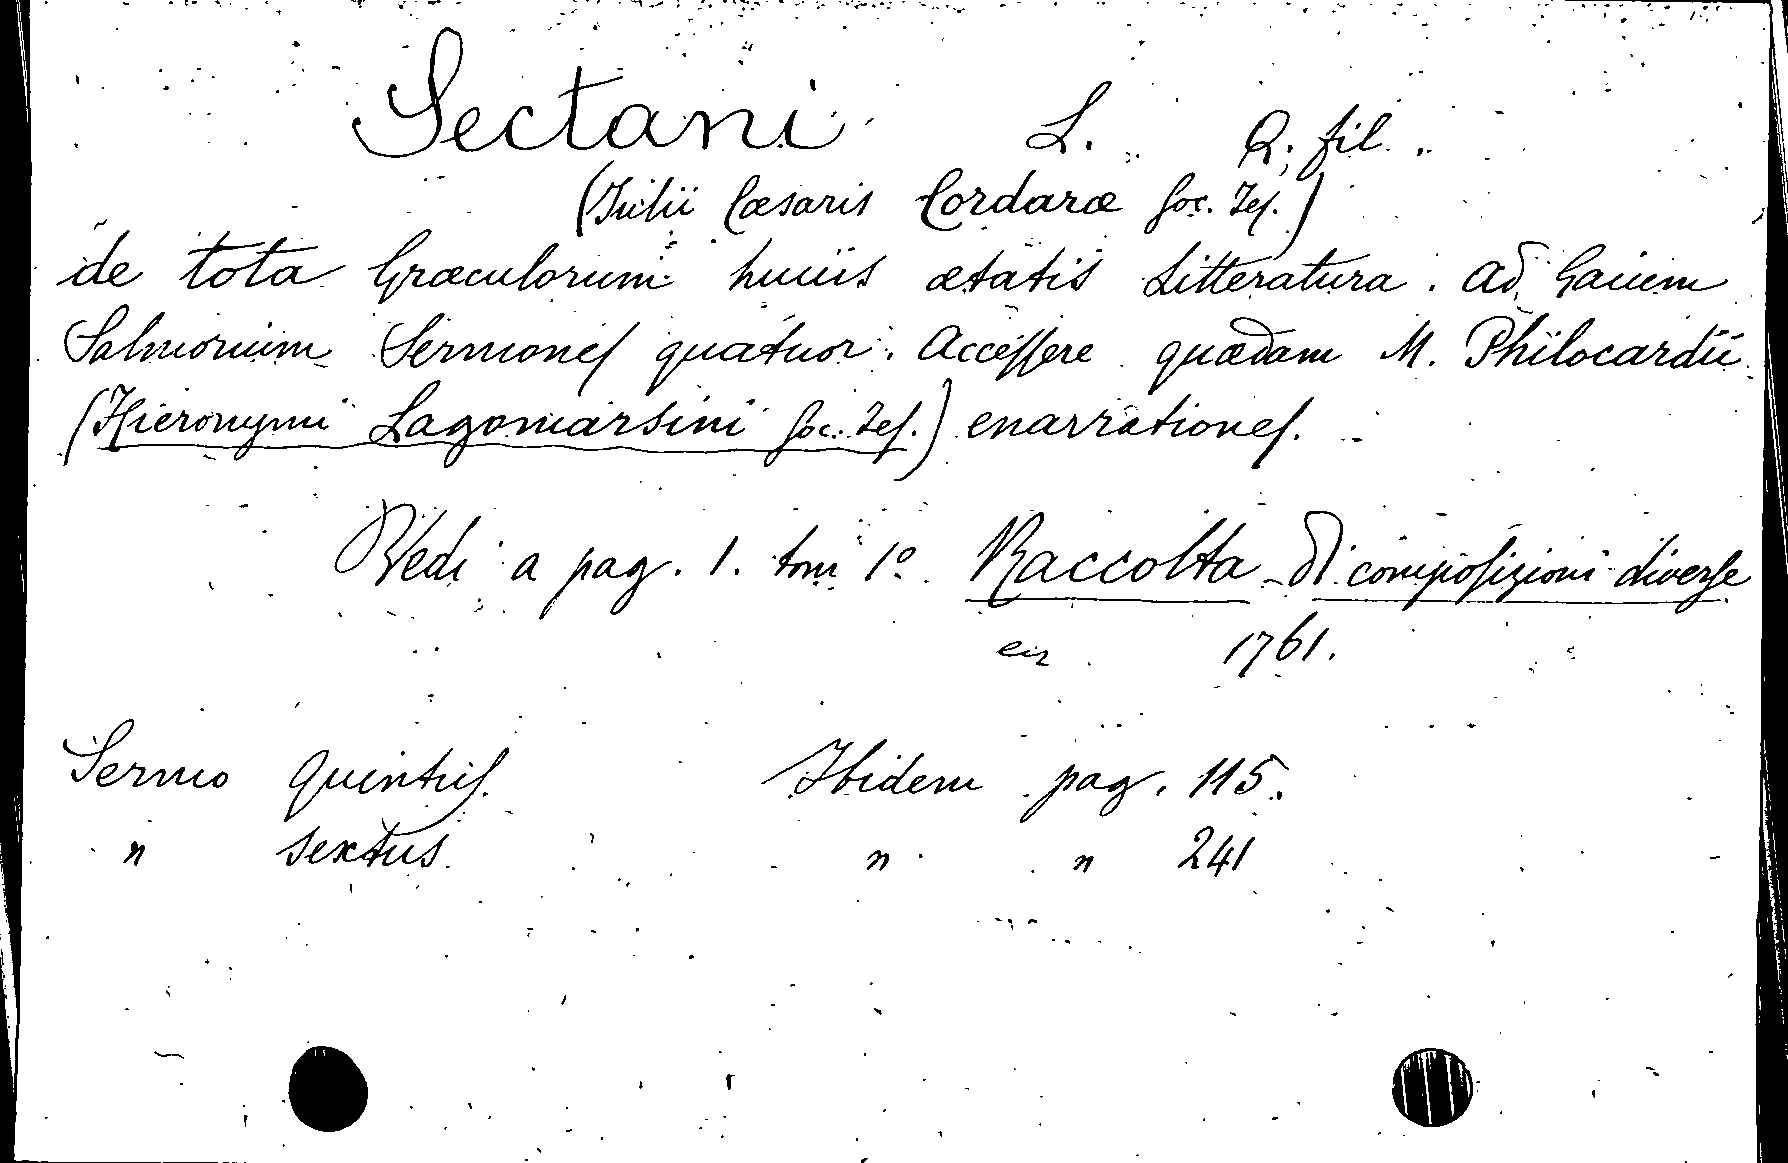 Sectani L. Q. fil.
(Julii Cæsaris Cordaræ Soc. Jes.)
de tota Græculorum huius ætatis Litteratura. Ad Gaium
Salmorium Sermones quatuor. Accessere quædam M. Philocardii
(Hieronymi Lagomarsini Soc. Jes.) enarrationes.
Vedi a pag. 1. tom 1º Raccolta di composizioni diverse
1761.
Sermo quintus. Ibidem pag. 115.
" sextus. " " 241